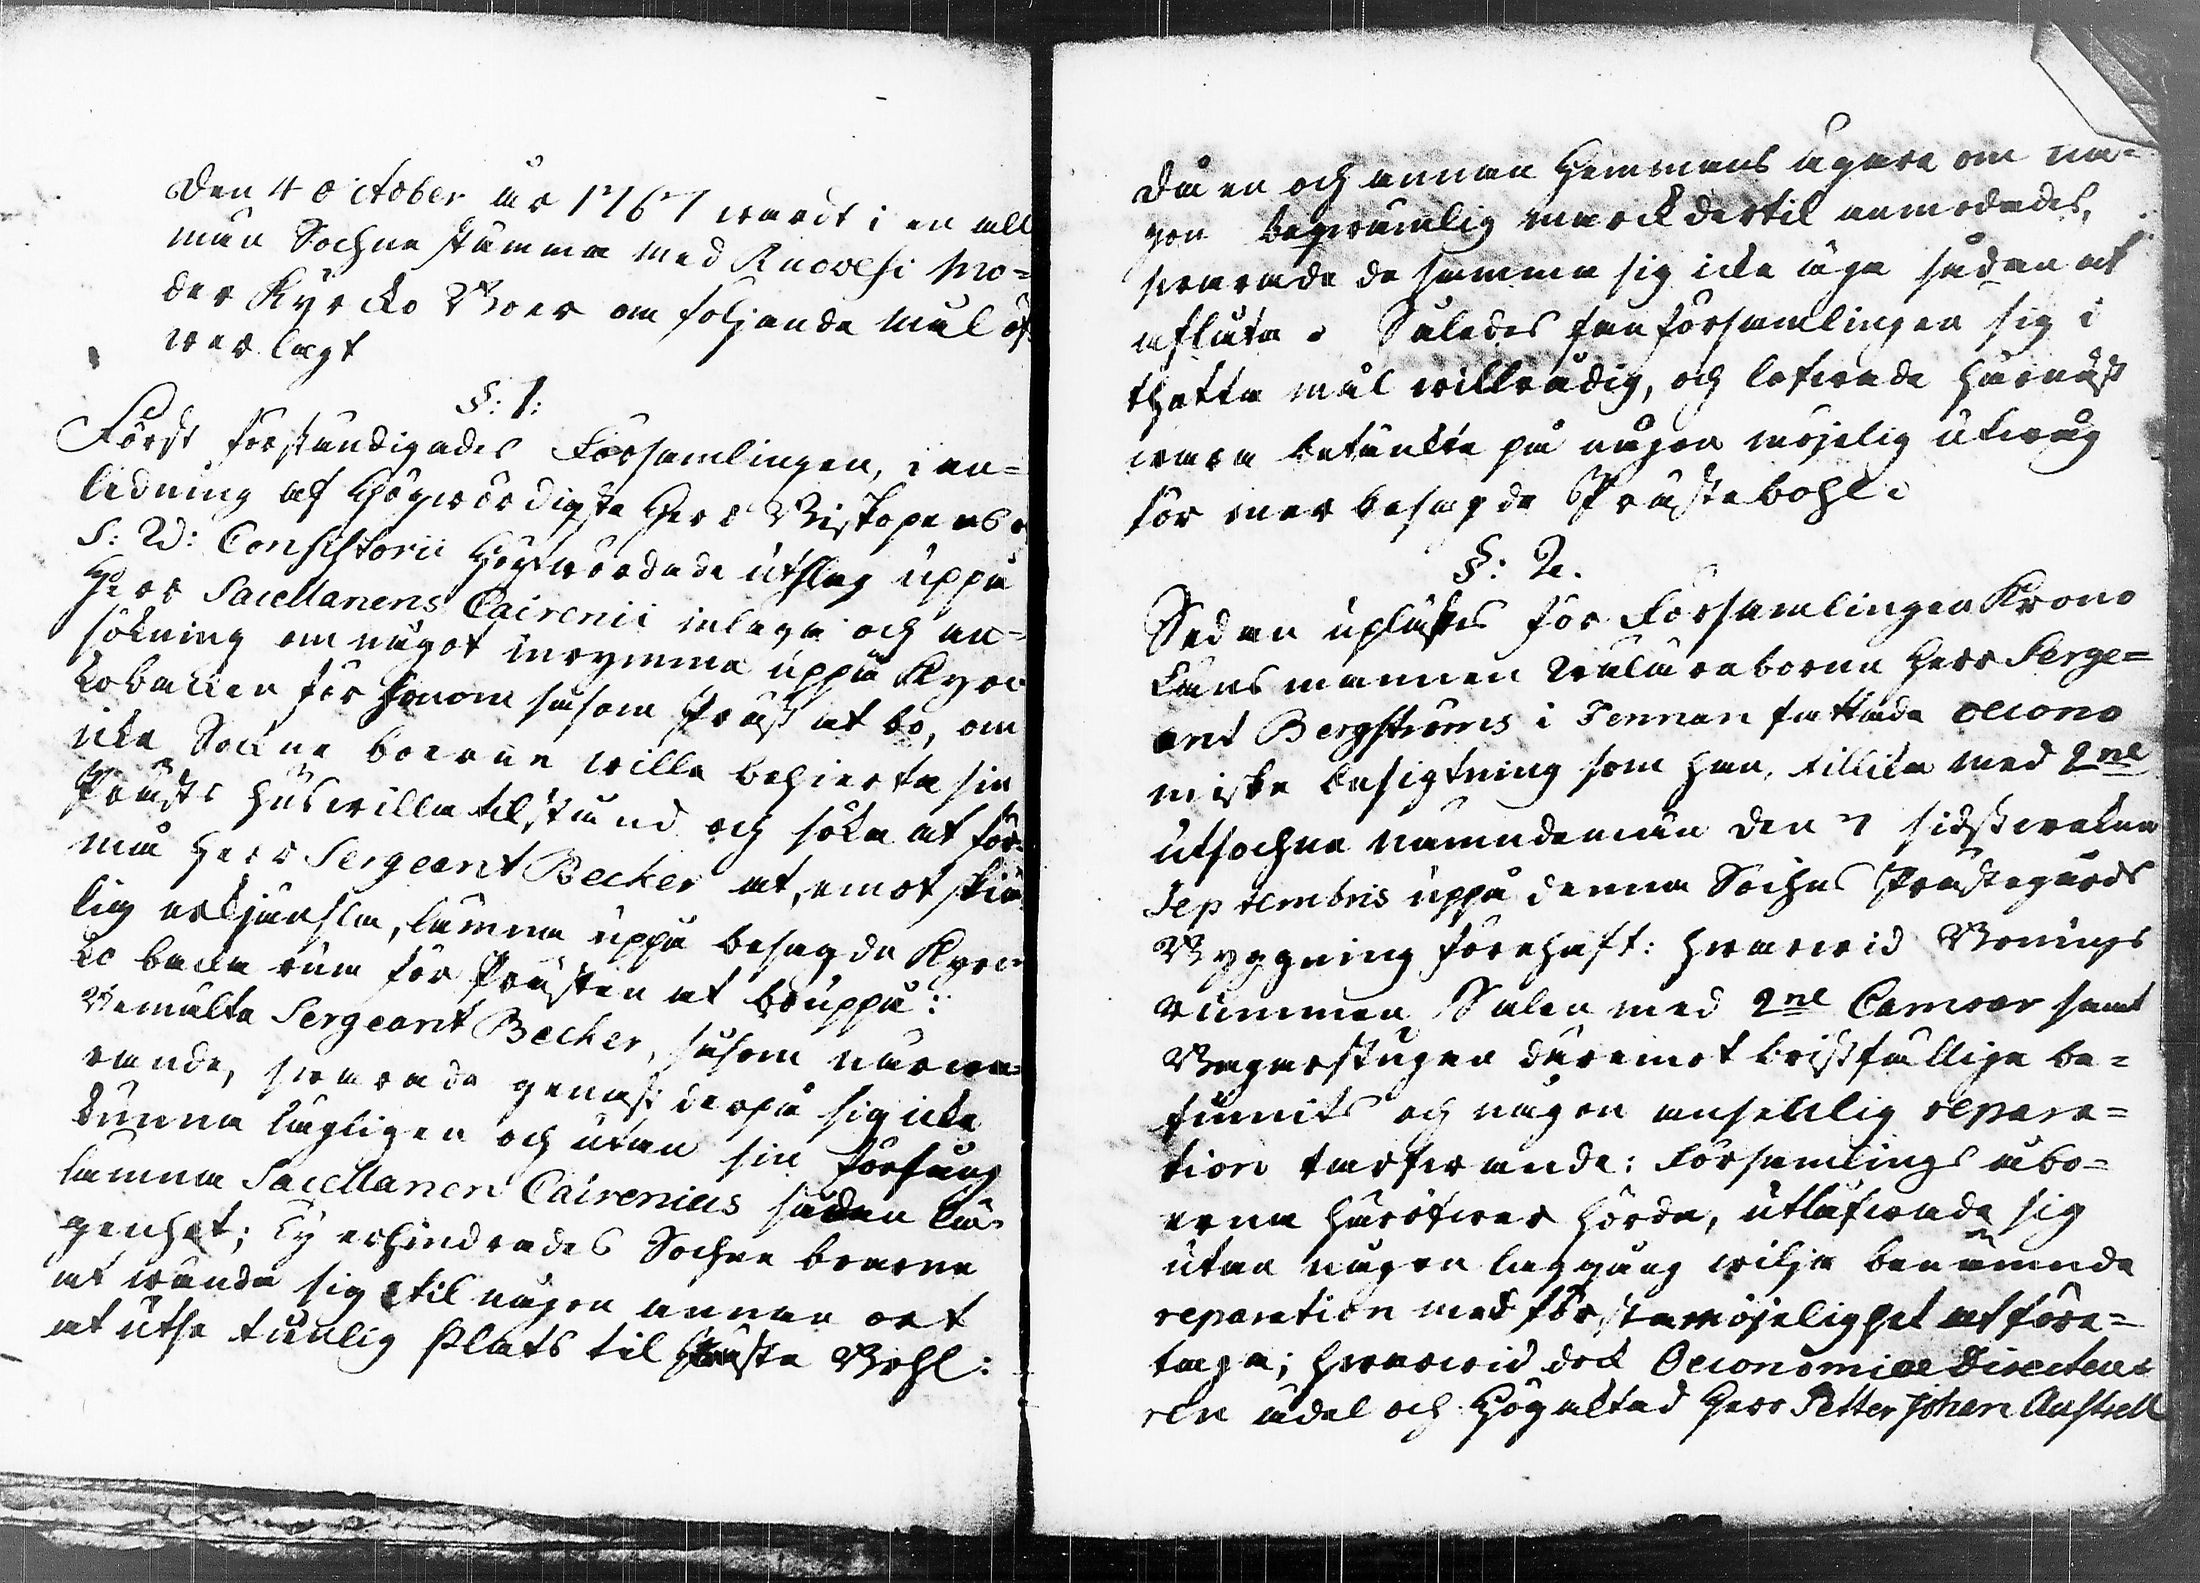 Den 4 October år 1767 wardt i en all
män Sochne stämma med Ruovesi Mo=
der Kyrcko Boer om foljande mål öf=
werlagt
§: 1:
Först forständigades Församlingen, i an=
ledning af Högwördigste Herr Biskopens o
S: W: Consistorii Högtwördade utslag uppå
Herr Sacellanens Cairenii inlaga och an=
sökning om något inrymme uppå Kyrc
kobacken för honom såsom Präst at bo, om
icke Sockne boerne wille behierta sin
Prästs huswilla tilstånd och söka at för=
må Herr Sergeant Becker at, emot skiä
lig ersjänsla, lämna uppå besagde Kyrc
ko backa rum för Prästen at bo uppå:
Bemälte Sergeant Becker, såsom närwa=
rande, swarade genast derpå sig icke
kunna lägligen och utan sin förfång
lämna Sacellanen Cairenius sådan lä=
genhet; Ty erhindrades Sochne boerne
at wända sig til någon annan ort
at utse tienlig Plats til Präste Bohl:
Då en och annan Hemmans ägare om nå=
gon beqwämlig marck dertil anmodades,
swarade de samma sig icke äga sådan at
aflåta. Således fan församlingen sig i
thetta mål willrådig, och lofwade härnäst
wara betänckte på någon möjelig utwäg
för mer besagde Prästebohl.
§: 2.
Sedan uplästes för Församlingen Krono
Länsmannen Wälärebornn Herr Serge=
ant Bergströms i Tennan fattade oecono
miske besigtning som han, tillika med 2ne
utsochne nämndemän den 7 sidstwekne
Septembris uppå denna Sochns Prästegårds
Byggning förehaft: hwarwid Bonings
rummen Salen med 2ne Camrar samt
Bagarstugan däremot bristfällige be=
funnits och någon ansenlig repara=
tion tarfwande: Församlings åbo=
erna häröfwer hörde, utläfwade sig
utan någon laggång wilja benämnde
reparation med första möjelighet at före=
taga; hwarwid dock Oeconomiae Directeu=
ren ädel och Högaktad Herr Petter Johan Austrell